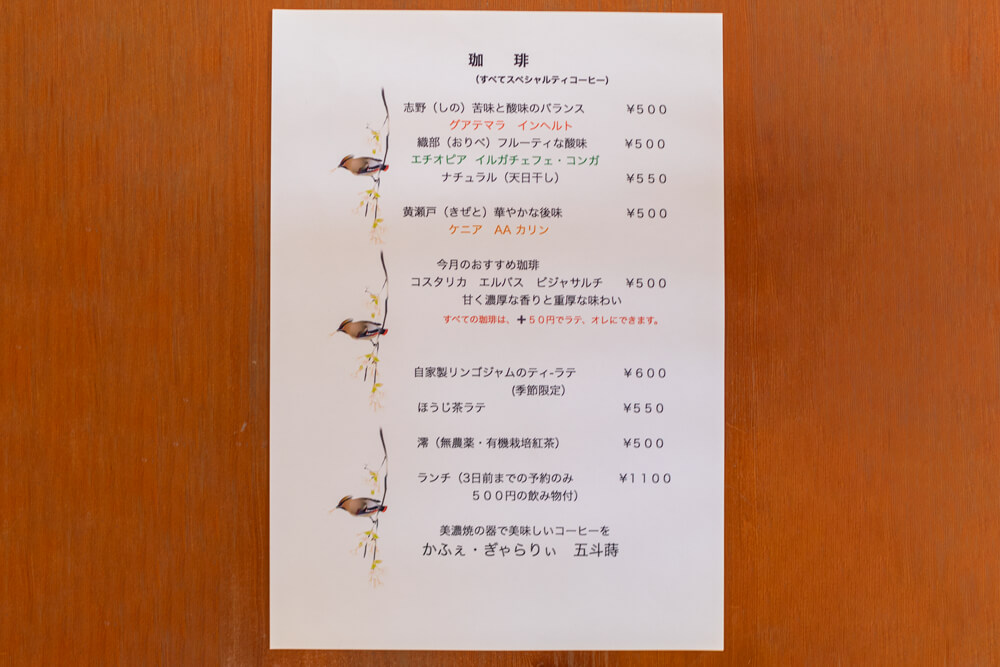 珈 琲
(すべてスペシャルティコーヒー)
志野（しの）苦味と酸味のバランス ￥５００
グアテマラ インヘルト
織部（おりべ）フルーティな酸味 ￥５００
エチオピア イルガチェフェ・コンガ
ナチュラル（天日干し） ￥５５０
黄瀬戸（きぜと）華やかな後味 ￥５００
ケニア AA カリン
今月のおすすめ珈琲
コスタリカ エルバス ビジャサルチ ￥５００
甘く濃厚な香りと重厚な味わい
すべての珈琲は、➕５０円でラテ、オレにできます。
自家製リンゴジャムのティ-ラテ ￥６００
(季節限定）
ほうじ茶ラテ ￥５５０
澪（無農薬・有機栽培紅茶） ￥５００
ランチ（3日前までの予約のみ ￥１１００
５００円の飲み物付）
美濃焼の器で美味しいコーヒーを
かふぇ・ぎゃらりぃ 五斗蒔